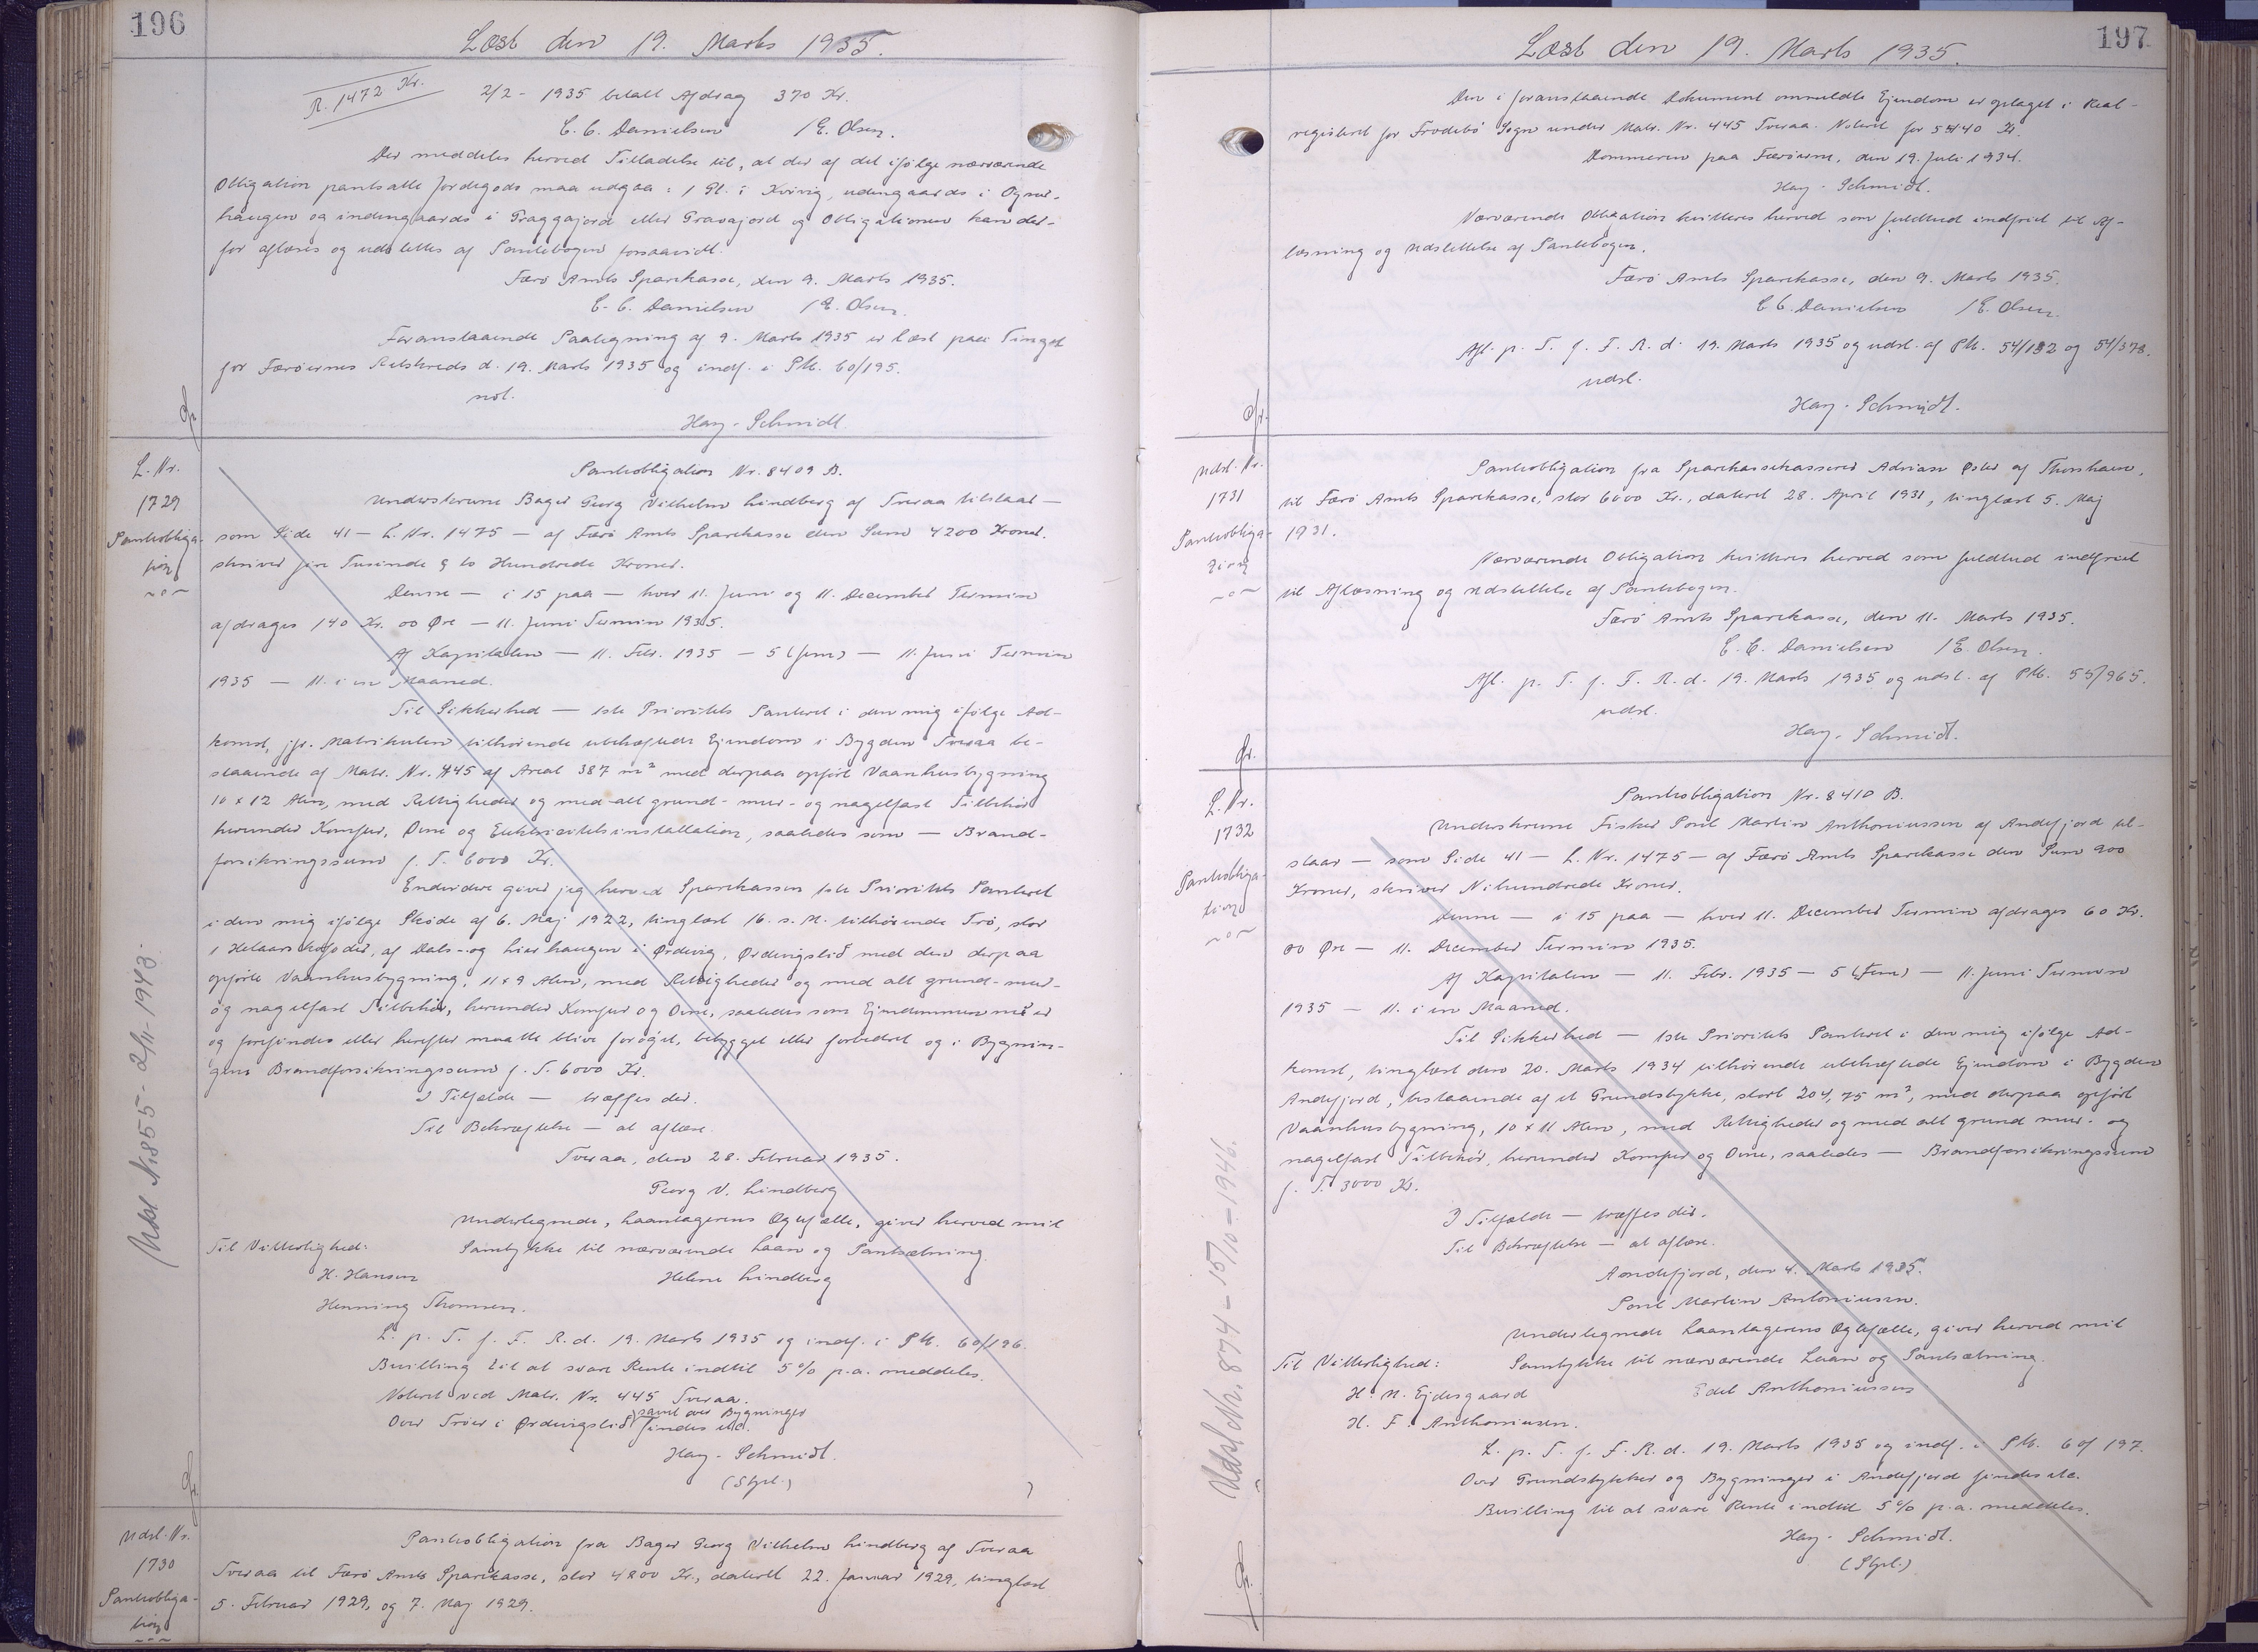 196
Læst den 19. Marts 1935.
R. 1472 Kr.
2/2 - 1935 betalt Afdrag 370 Kr.
C. C. Danielsen / E. Olsen.
Der meddeles herved Tilladelse til, at der af det ifølge nærværende
Obligation pantsatte Jordegods maa udgaa: 1 Gl. i Kvivig, udengaards i
haugen og indengaards i Traggajord eller Gravajord og Obligationen kan der-
for aflæses og udslettes af Pantebogen forsaavidt.
Færø Amts Sparekasse, den 9. Marts 1935.
C. C. Danielsen / E. Olsen.
Foranstaaende Paategning af 9. Marts 1935 er læst paa Tinget
for Færøernes Retskreds d. 19. Marts 1935 og indf. i Ptb. 60/195.
not.
Hay-Schmidt
L. Nr.
1729
Pantobliga-
tion
Pantobligation Nr. 8409 B.
Underskrevne Bager Georg Vilhelm Lindberg af Tveraa tilstaar —
som Side 41 — L. Nr. 1475 — af Færø Amts Sparekasse den Sum 4200 Kroner.
skriver fire Tusinde & to Hundrede Kroner.
Denne — i 15 paa — hver 11. Juni og 11. December Termin
afdrages 140 Kr. 00 Øre — 11. Juni Termin 1935.
Af Kapitalen — 11. Febr. 1935 — 5 (fem) — 11. Juni Termin
1935 — 11. i en Maaned.
Til Sikkerhed — 1ste Prioritets Panteret i den mig ifølge Ad-
komst, jfr. Matrikulen tilhørende ubehæftede Ejendom i Bygden Tveraa be-
staaende af Matr. Nr. 445 af Areal 387 m² med derpaa opført Vaanhusbygning
10 x 12 Alen, med Rettigheder og med alt grund- mur- og nagelfast Tilbehør
herunder Komfur, Ovne og Elektricitetsinstallation, saaledes som — Brand-
forsikringssum f. T. 6000 Kr.
Endvidere giver jeg herved Sparekassen 1ste Prioritets Panteret
i den mig ifølge Skøde af 6. Maj 1922, tinglæst 16. s. M. tilhørende Trø, stor
1 Helaars kofoder, af Dals- og hierhaugen i Ørdevig, Ørdevigslid med den derpaa
opførte Vaanhusbygning, 11 x 9 Alen, med Rettigheder og med alt grund- mur-
og nagelfast Tilbehør, herunder Komfur og Ovne, saaledes som Ejendommen nu er
og forefindes eller herefter maatte blive forøget, bebygget eller forbedret og i Bygnin-
gens Brandforsikringssum f. T. 6000 Kr.
I Tilfælde — træffes der.
Til Bekræftelse — at aflæse.
Tveraa, den 28. Februar 1935.
Georg V. Lindberg
Undertegnede, Laantagerens Ægtefælle, giver herved mit
Til Vitterlighed: Samtykke til nærværende Laan og Pantsætning.
H. Hansen Helene Lindberg
Henning Thomsen.
L. p. T. f. F. R. d. 19. Marts 1935 og indf. i Ptb. 60/196.
Bevilling til at svare Rente indtil 5% p.a. meddeles.
Noteret ved Matr. Nr. 445 Tveraa.
samt over Bygninger
Over Trøer i Ørdevigslid findes
Hay-Schmidt.
(Stpl.)
Udsl. Nr. 855 - 2/11 - 1943.
Udsl. Nr.
1730
Pantobliga-
tion
Pantobligation fra Bager Georg Vilhelm Lindberg af Tveraa
Tveraa til Færø Amts Sparekasse, stor 4800 Kr., dateret 22. Januar 1929, tinglæst
5. Februar 1929, og 7. Maj 1929.
197
Læst den 19. Marts 1935.
Den i foranstaaende Dokument ommeldte Ejendom er optaget i Real-
registeret for Frodebø Sogn under Matr. Nr. 445 Tveraa. Noteret for Kr.
Dommeren paa Færøerne, den 19. Juli 1934.
Hay-Schmidt.
Nærværende Obligation kvitteres herved som fuldtud indfriet til Af-
læsning og Udslettelse af Pantebogen.
Færø Amts Sparekasse, den 9. Marts 1935.
C C. Danielsen / E. Olsen.
Afl. p. T. f. F. R. d. 19. Marts 1935 og udsl. af Ptb. 54/132 og 54/378.
udsl.
Hay-Schmidt.
Udsl. Nr.
1731
Pantobliga-
tion
Pantobligation fra Sparekassekasserer Adrian Øster af Thorshavn,
til Færø Amts Sparekasse, stor 6000 Kr., dateret 28. April 1931, tinglæst 5. Maj
1931.
Nærværende Obligation kvitteres herved som fuldtud indfriet
til Aflæsning og Udslettelse af Pantebogen.
Færø Amts Sparekasse, den 11. Marts 1935.
C. C. Danielsen / E. Olsen.
Afl. p. T. f. F. R. d. 19. Marts 1935 og udsl. af Ptb. 55/965.
udsl.
Hay-Schmidt.
L. Nr.
1732
Pantobliga-
tion
Pantobligation Nr. 8410 B.
Underskrevne Fisker Poul Martin Anthoniussen af Andefjord til-
staar — som Side 41 — L. Nr. 1475 — af Færø Amts Sparekasse den Sum 900
Kroner, skriver Nihundrede Kroner.
Denne — i 15 paa — hver 11. December Termin afdrages 60 Kr.
00 Øre — 11. December Termin 1935.
Af Kapitalen — 11. Febr. 1935 — 5 (Fem) — 11. Juni Termin
1935 — 11. i en Maaned.
Til Sikkerhed — 1ste Prioritets Panteret i den mig ifølge Ad-
komst, tinglæst den 20. Marts 1934 tilhørende ubehæftede Ejendom i Bygden
Andefjord, bestaaende af et Grundstykke, stort 204,75 m², med derpaa opført
Vaanhusbygning, 10 x 11 Alen, med Rettigheder og med alt grund mur- og
nagelfast Tilbehør, herunder Komfur og Ovne, saaledes — Brandforsikringssum
f. T. 3000 Kr.
I Tilfælde — træffes der.
Til Bekræftelse — at aflæse.
Aandefjord, den 4. Marts 1935.
Poul Martin Antoniussen.
Undertegnede Laantagerens Ægtefælle, giver herved mit
Til Vitterlighed: Samtykke til nærværende Laan og Pantsætning.
H. N. Ejdesgaard Edel Anthoniussen
H. F. Anthoniussen.
L. p. T. f. F. R. d. 19. Marts 1935 og indf. i Ptb. 60/197.
Over Grundstykker og Bygninger i Andefjord findes
Bevilling til at svare Rente indtil 5% p.a. meddeles.
Hay-Schmidt.
(Stpl.)
Udsl. Nr. 874 - 15/10 - 1946.